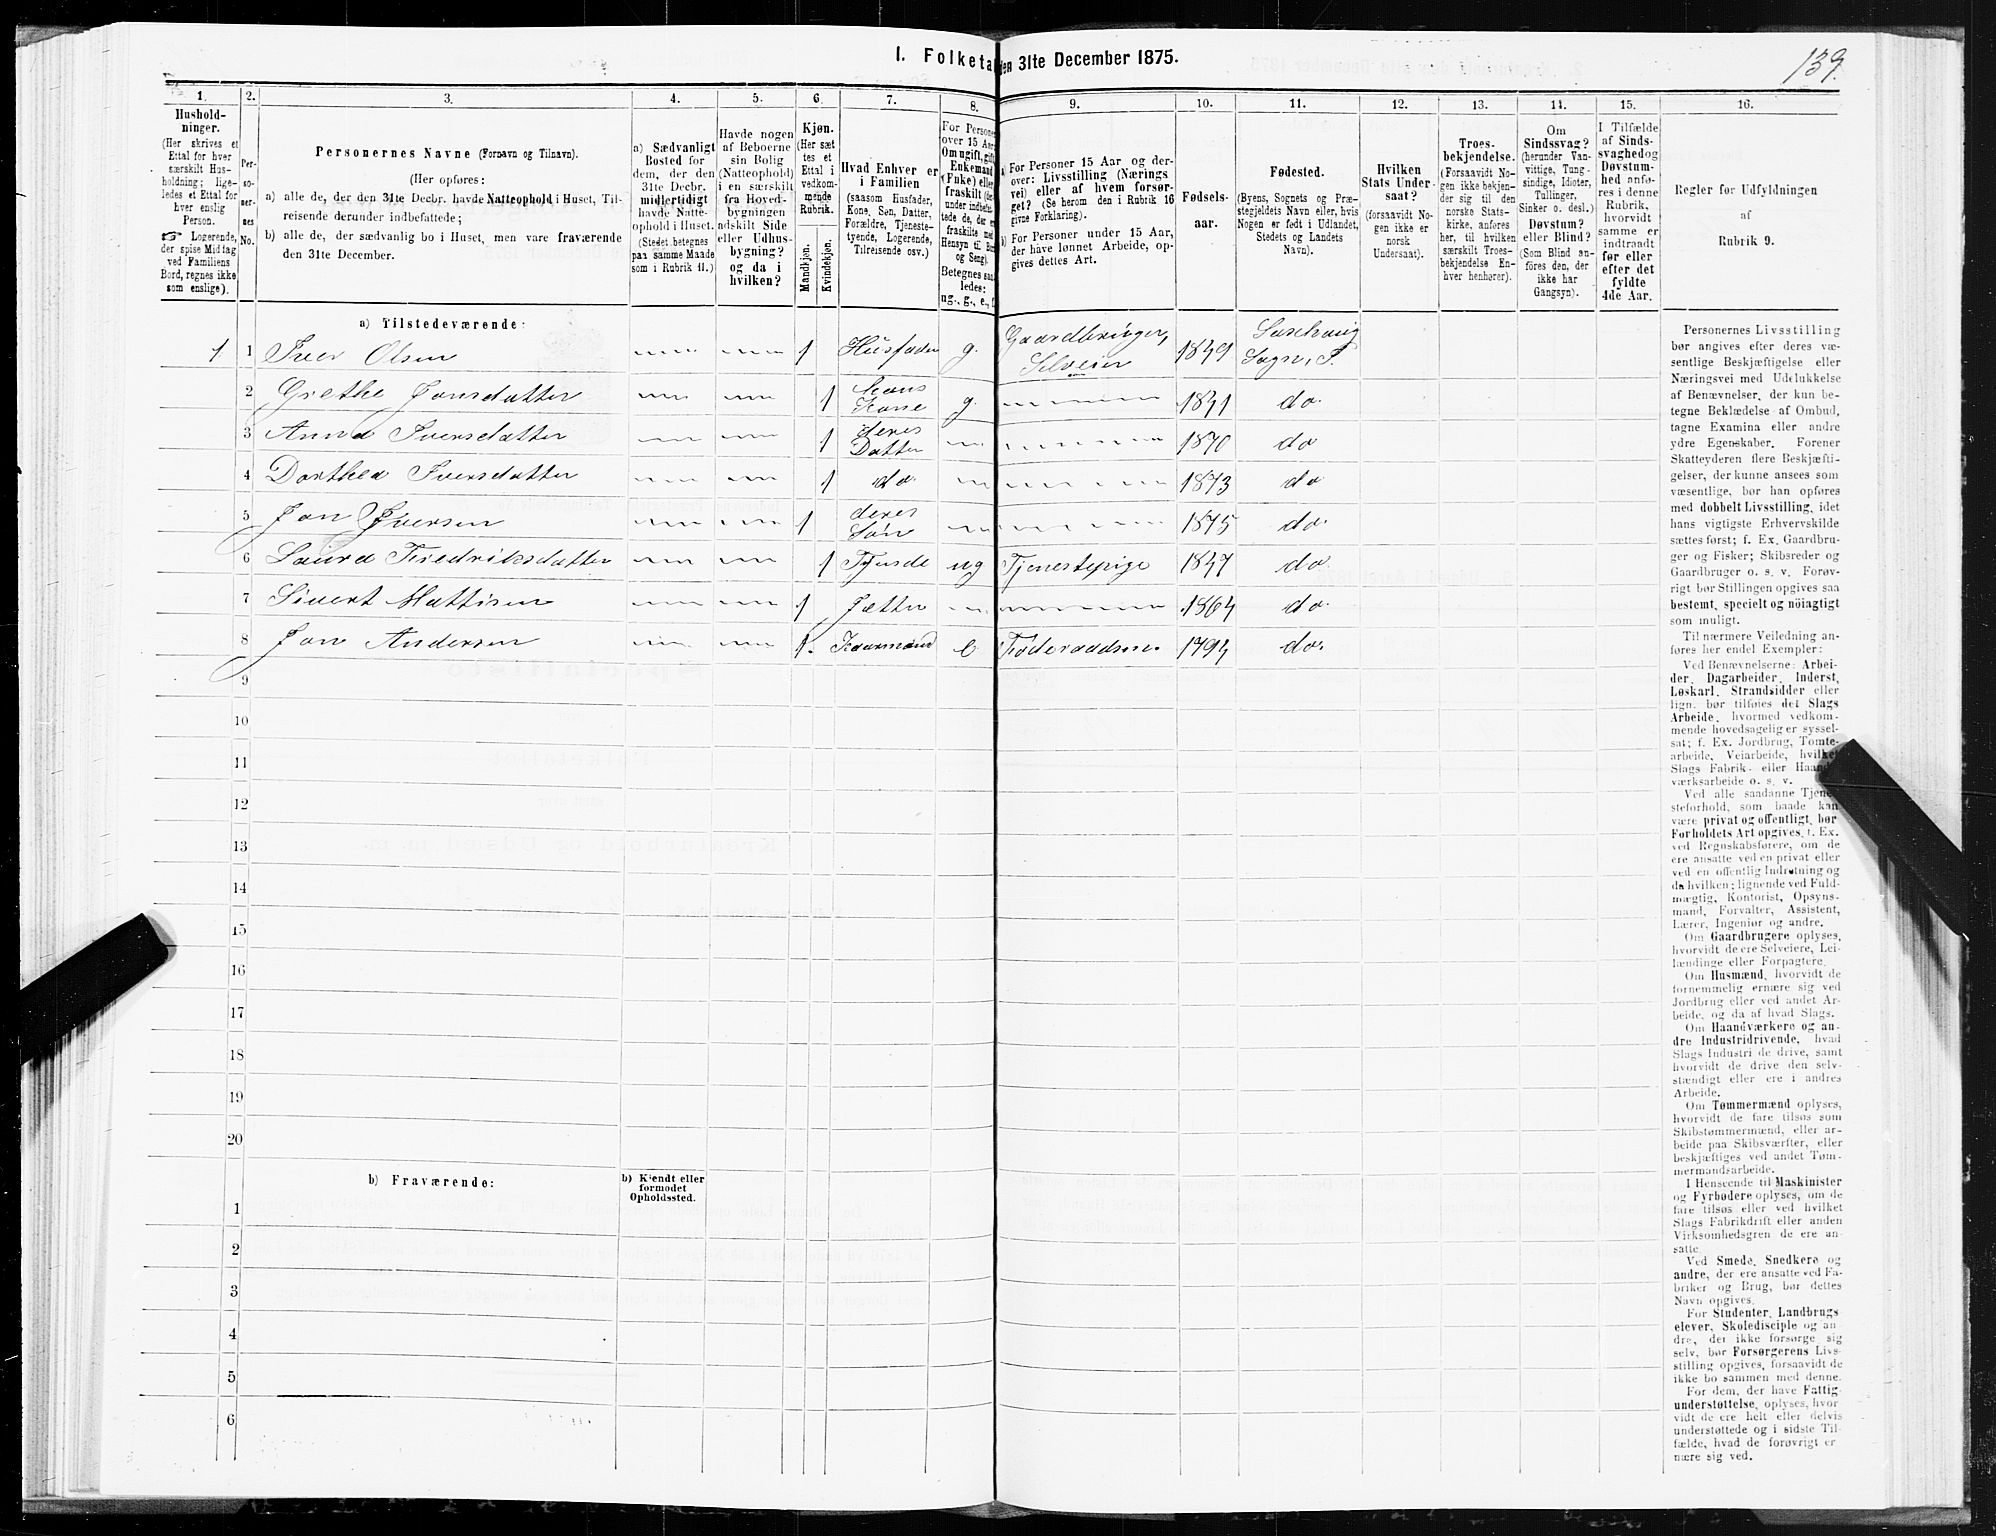 I. Folketa
den 31te December 1875.
139.
1.
2.
3.
4.
5.
6.
7.
8.
9.
10.
11.
12.
13.
14.
15.
16.
Hushold-
ninger.
(Her skrives et
Ettal for hver
særskilt Hus-
holdning; lige-
ledes et Ettal for
hver enslig
Person.
☞ Logerende,
der spise Middag
ved Familiens
Bord, regnes ikke
som enslige).
Per-
so-
ner-
nes
No.
Personernes Navne (Fornavn og Tilnavn).
(Her opføres:
a) alle de, der den 31te Decbr. havde Natteophold i Huset, Til-
reisende derunder indbefattede;
b) alle de, der sædvanlig bo i Huset, men vare fraværende
den 31te December.
a) Sædvanligt
Bosted for
dem, der den
31te Decbr.
midlertidigt
havde Natte-
ophold i Huset.
(Stedet betegnes
paa samme Maade
som i Rubrik 11.)
Havde nogen
af Beboerne
sin Bolig
(Natteophold)
i en særskilt
fra Hoved-
bygningen
adskilt Side
eller Udhus-
bygning?
og da i
hvilken?
Kjøn.
(Her sæt
tes et
Ettal i
vedkom-
mende
Rubrik.
Mandkjøn.
Kvindekjøn.
Hvad Enhver er
i Familien
(saasom Husfader,
Kone, Søn, Datter,
Forældre, Tjeneste-
tyende, Logerende,
Tilreisende osv.)
For Persone
over 15 Aar
Om ugift, gift
Enkemand
(Enke) elle
fraskilt (de
under indbefat
tede de, der e
fraskilte med
Hensyn til Bor
og Seng).
Betegnes saa
ledes:
ug., g., e., f.
a) For Personer 15 Aar og der-
over: Livsstilling (Nærings
vei) eller af hvem forsør-
get? (Se herom den i Rubrik 16
givne Forklaring).
b) For Personer under 15 Aar,
der have lønnet Arbeide, op-
gives dettes Art.
Fødsels-
aar.
Fødested.
(Byens, Sognets og Præ-
stegjeldets Navn eller, hvis
Nogen er født i Udlandet,
Stedets og Landets
Navn).
Hvilken
Stats Under-
saat?
(forsaavidt No-
gen ikke er
norsk
Undersaat).
Troes-
bekjendelse.
(Forsaavidt No-
gen ikke bekjen-
der sig til den
norske Stats-
kirke, anføres
her, til hvilken
særskilt Troes-
bekjendelse En-
hver henhører).
Om
Sindssvag?
(herunder Van-
vittige, Tung-
sindige, Idioter,
Tullinger,
Sinker o. desl.)
Døvstum?
eller Blind?
(Som Blind an-
føres den, der
ikke har
Gangsyn).
I Tilfælde
af Sinds-
svaghedog
Døvstum-
hed anfø-
res i denne
Rubrik,
hvorvidt
samme er
indtraadt
før eller
efter det
fyldte
4de Aar.
Regler for Udfyldningen
af
Rubrik 9.
a) Tilstedeværende:
1 1 Iver Olsen 1 Husfader g. Gaardbruger, Selveier 1849 Sogn, P.
2 Grethe Jonsdatter 1 hans Kone g. 1841 do.
3 Anna Iversdatter 1 deres Datter 1870 do
4 Dorthea Iversdatter 1 do. 1873 do
5 Jon Iversen 1 deres Søn 1875 do.
6 Laura Fredriksdatter 1 Tjende ug Tjenestepige 1847 do.
7 Sivert Mattisen 1 1864 do.
8 Jon Andersen 1. e. 1794 do.
9
10
11
12
13
14
15
16
17
18
19
20
b) Fraværende:
b) Kjendt eller
formodet
Opholdssted.
1
2
3
4
5
6
Personernes Livsstilling
bør angives efter deres væ-
sentlige Beskjæftigelse eller
Næringsvei med Udelukkelse
af Benævnelser, der kun be-
tegne Beklædelse af Ombud,
tagne Examina eller andre
ydre Egenskaber. Forener
Skatteyderen flere Beskjæfti-
gelser, der kunne ansees som
væsentlige, bør han opføres
med dobbelt Livsstilling, idet
hans vigtigste Erhvervskilde
sættes først; f. Ex. Gaardbru-
ger og Fisker; Skibsreder og
Gaardbruger o. s. v. Forøv-
rigt bør Stillingen opgives saa
bestemt, specielt og nøiagtigt
som muligt.
Til nærmere Veiledning an-
føres her endel Exempler:
Ved Benævnelserne: Arbei-
der, Dagarbeider, Inderst,
Løskarl, Strandsidder eller
lign. bør tilføies det Slags
Arbeide, hvormed vedkom-
mende hovedsagelig er syssel-
sat; f. Ex. Jordbrug, Tomte-
arbeide, Veiarbeide, hvilket
Slags Fabrik- eller Haand-
værksarbeide o. s. v.
Ved alle saadanne Tjene-
steforhold, som baade kan
være privat og offentligt, bør
Forholdets Art opgives, f. Ex.
ved Regnskabsførere, om de
ere ansatte ved en privat eller
ved en offentlig Indretning og
da hvilken; lignende ved Fuld-
mægtig, Kontorist, Opsyns-
mand, Forvalter, Assistent,
Lærer, Ingeniør og andre.
Om Gaardbrugere oplyses,
hvorvidt de ere Selveiere, Lei-
lændinge eller Forpagtere.
Om Husmænd, hvorvidt de
fornemmelig ernære sig ved
Jordbrug eller ved andet Ar-
beide, og da af hvad Slags.
Om Haandværkere og an-
dre Industridrivende, hvad
Slags Industri de drive, samt
hvorvidt de drive den selv-
stændigt eller ere i andres
Arbeide.
Om Tømmermænd oplyses,
hvorvidt de fare tilsøs som
Skibstømmermænd, eller ar-
beide paa Skibsværfter, eller
beskjæftiges ved andet Tøm-
mermandsarbeide.
I Henseende til Maskinister
og Fyrbødere oplyses, om de
fare tilsøs eller ved hvilket
Slags Fabrikdrift eller anden
Virksomhedsgren de ere an-
satte.
Ved Smede, Snedkere og
andre, der ere ansatte ved Fa-
briker og Brug, bør dettes
Navn opgives.
For Studenter, Landbrugs
elever, Skoledisciple og an-
dre, der ikke forsørge sig
selv, bør Forsørgerens Livs-
stilling opgives, forsaavidt de
ikke bo sammen med denne.
For dem, der have Fattig-
understøttelse, oplyses, hvor
vidt de ere helt eller delvis
understøttede og i sidste Til-
fælde, hvad de forøvrigt er
nære sig ved.